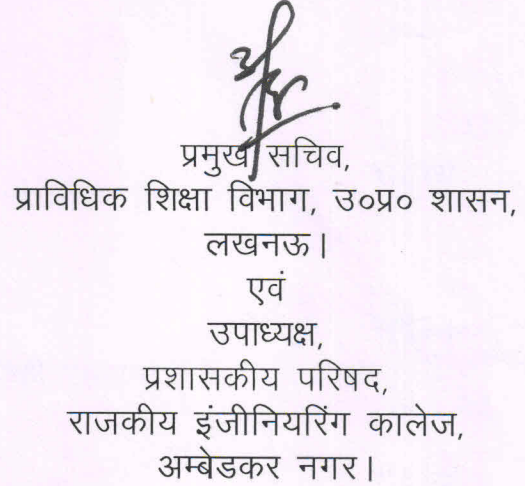 प्रमुख सचिव,
प्राविधिक शिक्षा विभाग, उ०प्र० शासन,
लखनऊ।
एवं
उपाध्यक्ष,
प्रशासकीय परिषद,
राजकीय इंजीनियरिंग कालेज,
अम्बेडकर नगर।